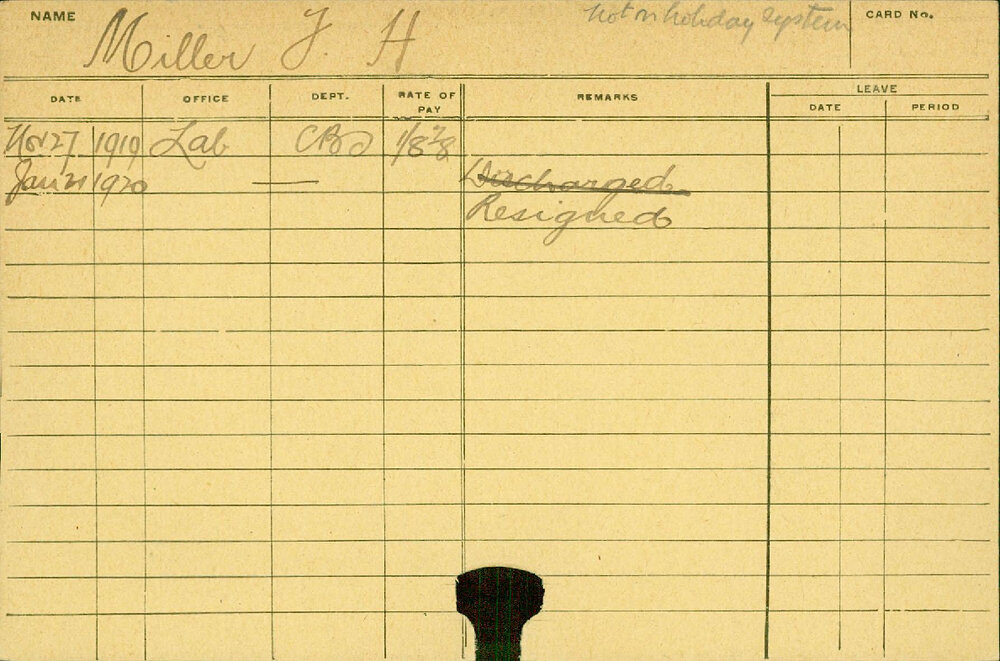 NAME Miller J. H not on holiday system CARD No.
DATE OFFICE DEPT. RATE OF PAY REMARKS LEAVE
DATE PERIOD
Nov 27 1919 Lab 1/8⅞
Jan 21 1920 — Discharged
Resigned